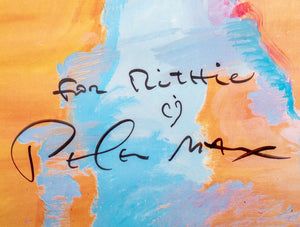 For Mithie
:)
Peter Max